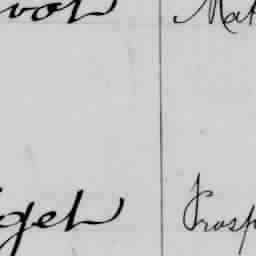 vot Mat
get Prosp